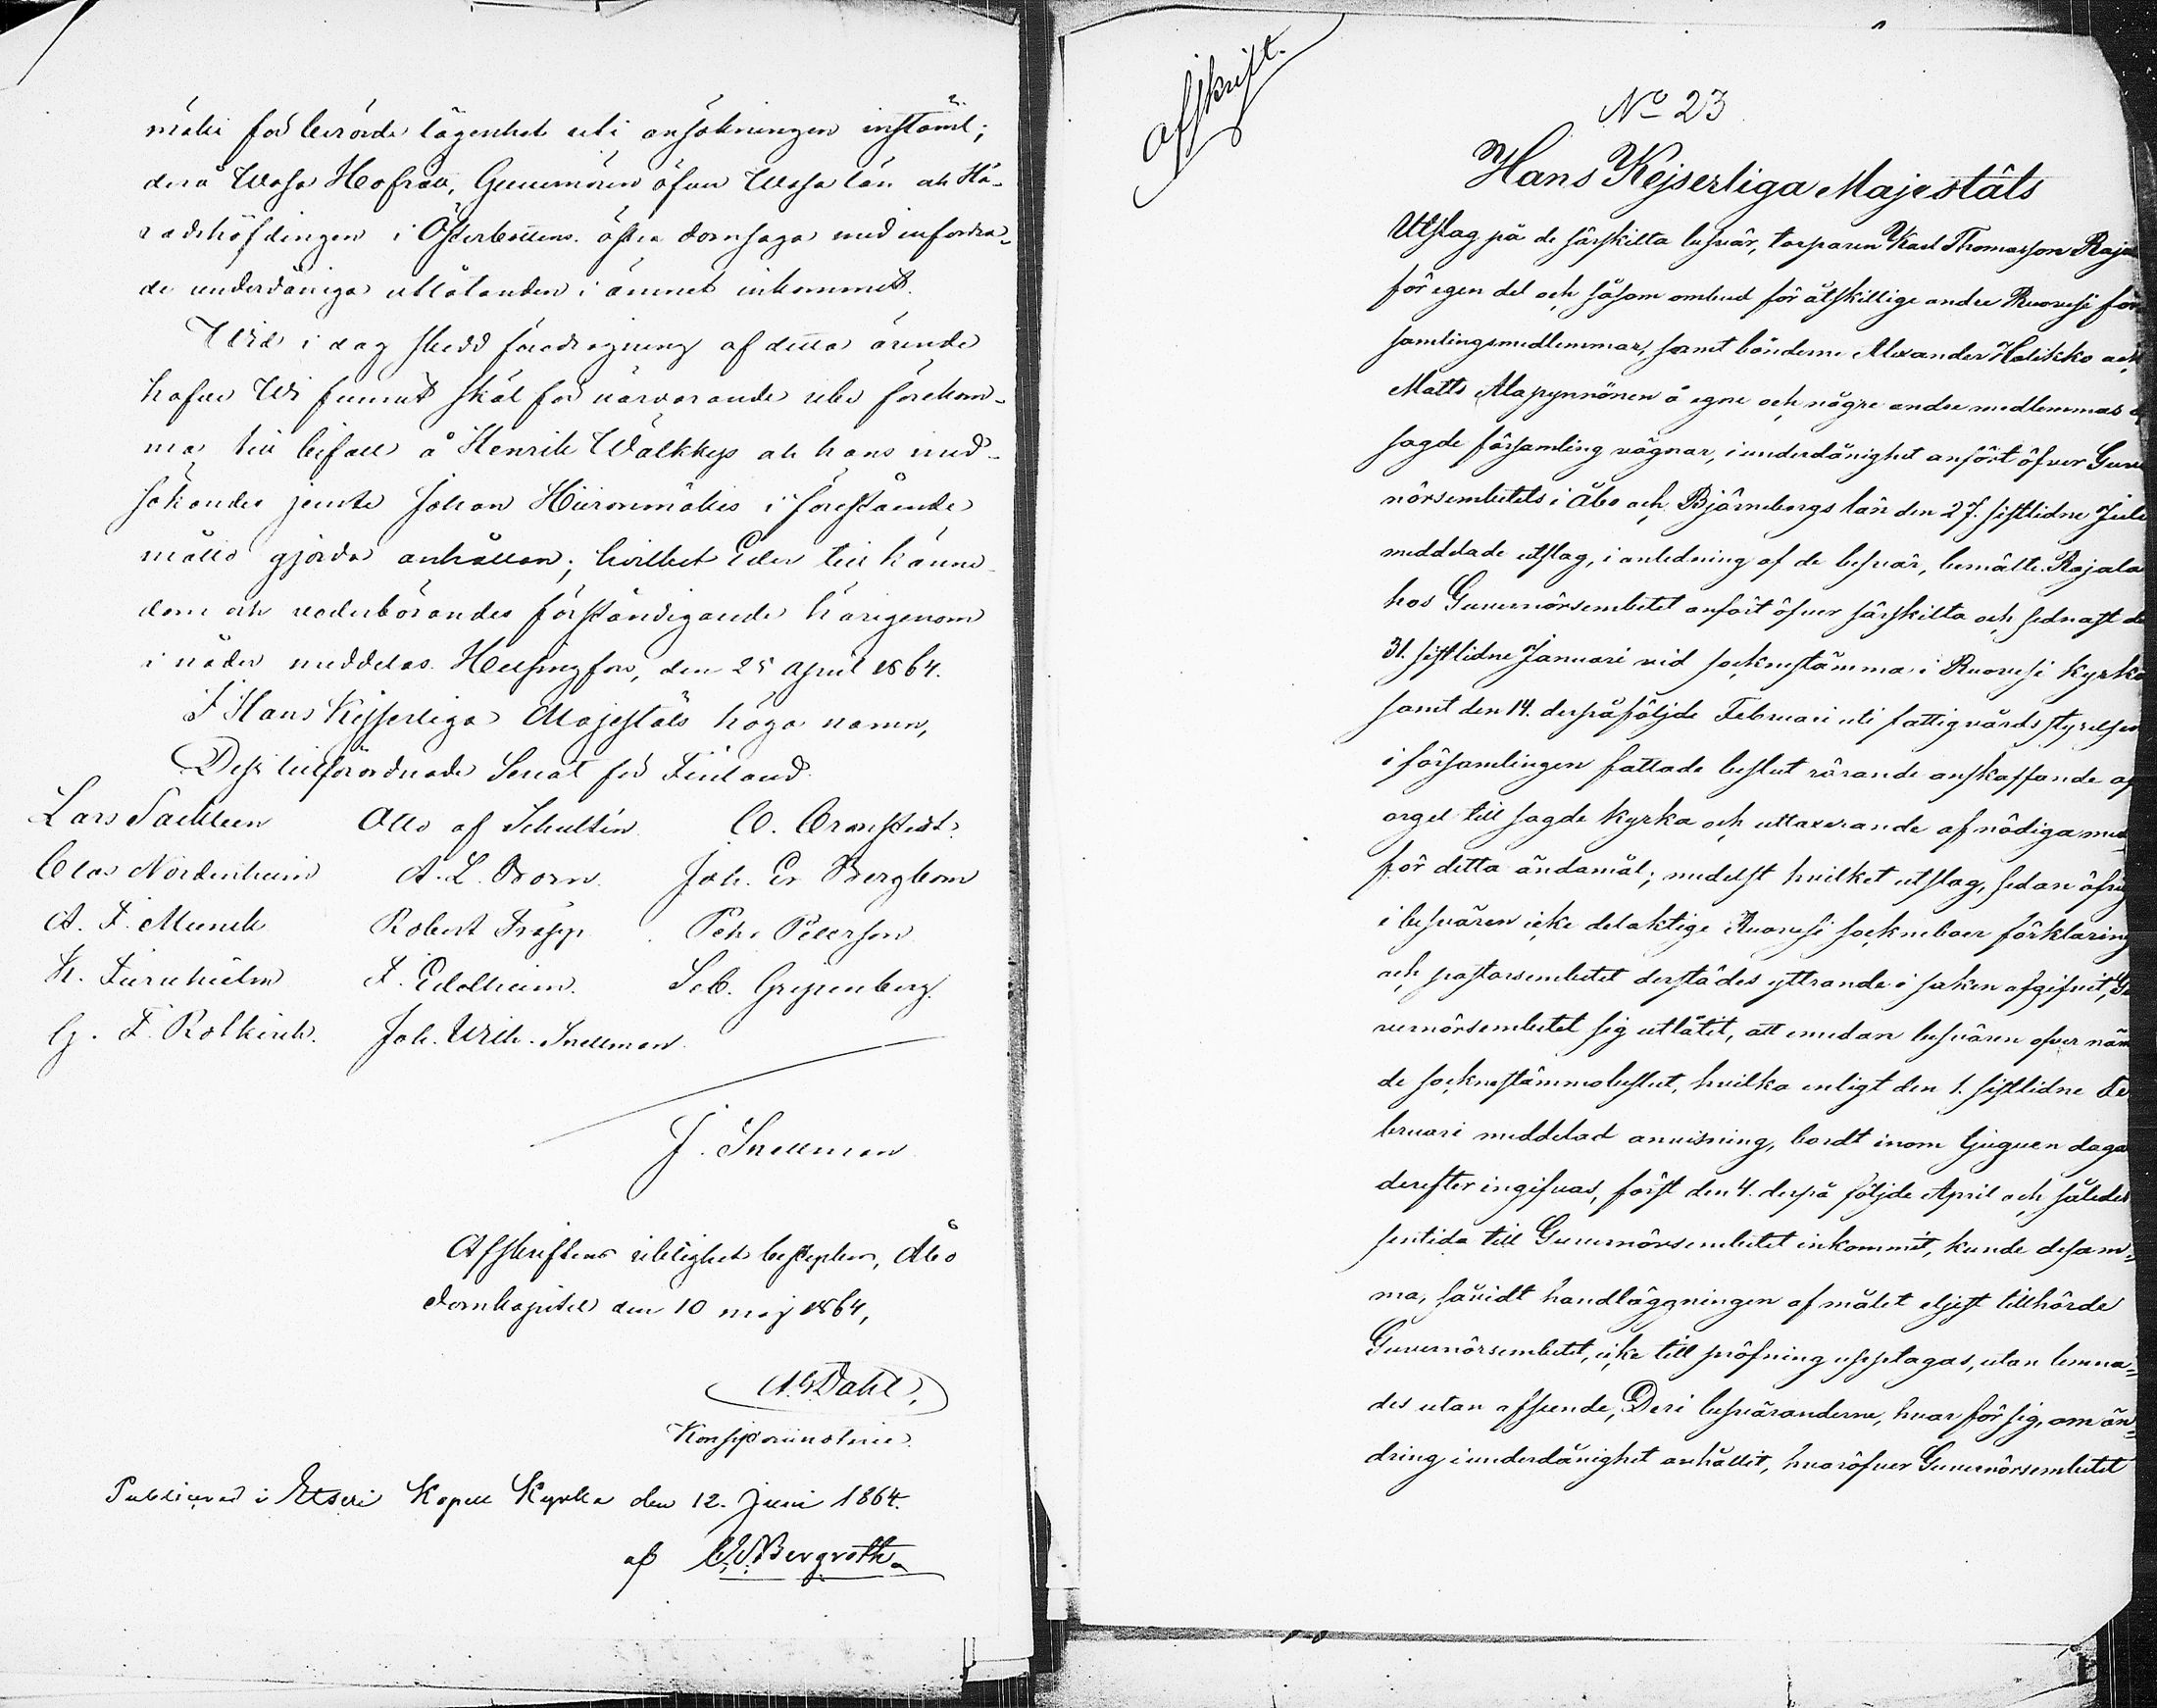 mäki för berörde lägenhet uti ansökningen instämt;
derå Wasa Hofrätt, Guvernören öfver Wasa län och Hä-
radshöfdingen i Österbottens östra domsaga med infordra-
de underdåniga utlåtanden i ämnet inkommit.
Wid i dag skedd föredragning af detta ärende
hafve Wi funnit skäl för närvarande icke förekom-
ma till bifall å Henrik Wälkkys och hans med-
sökandes jemte Johan Hiironmäkis i förestående
måtto gjorda anhållan; hvilket Eder till känne-
dom och vederbörandes förständigande härigenom
i nåder meddelas. Helsingfors, den 25 April 1864.
I Hans Kejserliga Majestäts höga namn,
Dess tillförordnade Senat för Finland
Lars Sackleen Otto af Schultén C. Cronstedt
Clas Nordenheim A. L. Born Joh. Er. Bergbom
A. F. Munck Robert Trapp Pehr Peterson
H. Furuhielm F. Edelheim. Seb. Gripenberg.
G. F. Rotkirch. Joh. Wilh. Snellman
J. Snellman
Afskriftens riktighet bestyrker, Åbo
Domkapitel den 10 maj 1864,
Dahl
Publicerad i Etseri Kapell Kyrka den 12. Juni 1864.
af Bergroth
Afskrift.
No 23
Hans Kejserliga Majestäts
Utslag på de särskilta besvär, torparen Karl Thomasson Raja
för egen del och såsom ombud för åtskillige andre Ruovesi för
samlingsmedlemmar, samt bönderne Alexander Halikko och
Matts Alapynnönen å egne och någre andre medlemmas
sagde församling vägnar, i underdånighet anfört öfver Guver
nörsembetets i Åbo och Björneborgs län den 27. sistlidne Juli
meddelade utslag, i anledning af de besvär, bemälte Rajala
hos Guvernörsembetet anfört öfver särskilta och sednast de
31. sistlidne Januari vid sockenstämma i Ruovesi kyrka
samt den 14. derpåföljde Februari uti fattigvårdsstyrelsen
i församlingen fattade beslut rörande anskaffande af
orgel till sagde kyrka och uttaxerande af nödiga med
för detta ändamål; medelst hvilket utslag, sedan öfrig
i besvären icke delaktige Ruovesi sockneboer förklaring
och pastorsembetet derstädes yttrande i saken afgifvit, Gu
vernörsembetet sig utlåtit, att emedan besvären öfver näm
de sockenstämmobeslut, hvilka enligt den 1. sistlidne Fe
bruari meddelad anvisning, bordt inom tjuguen daga
derefter ingifvas, först den 4. derpå följde April och således
sentida till Guvernörsembetet inkommit, kunde desam-
ma, såvidt handläggningen af målet eljest tillhörde
Guvernörsembetet, icke till pröfning upptagas, utan lemna-
des utan afseende, Deri besväranderne, hvar för sig, om än-
dring i underdånighet anhållit, hvaröfver Guvernörsembetet